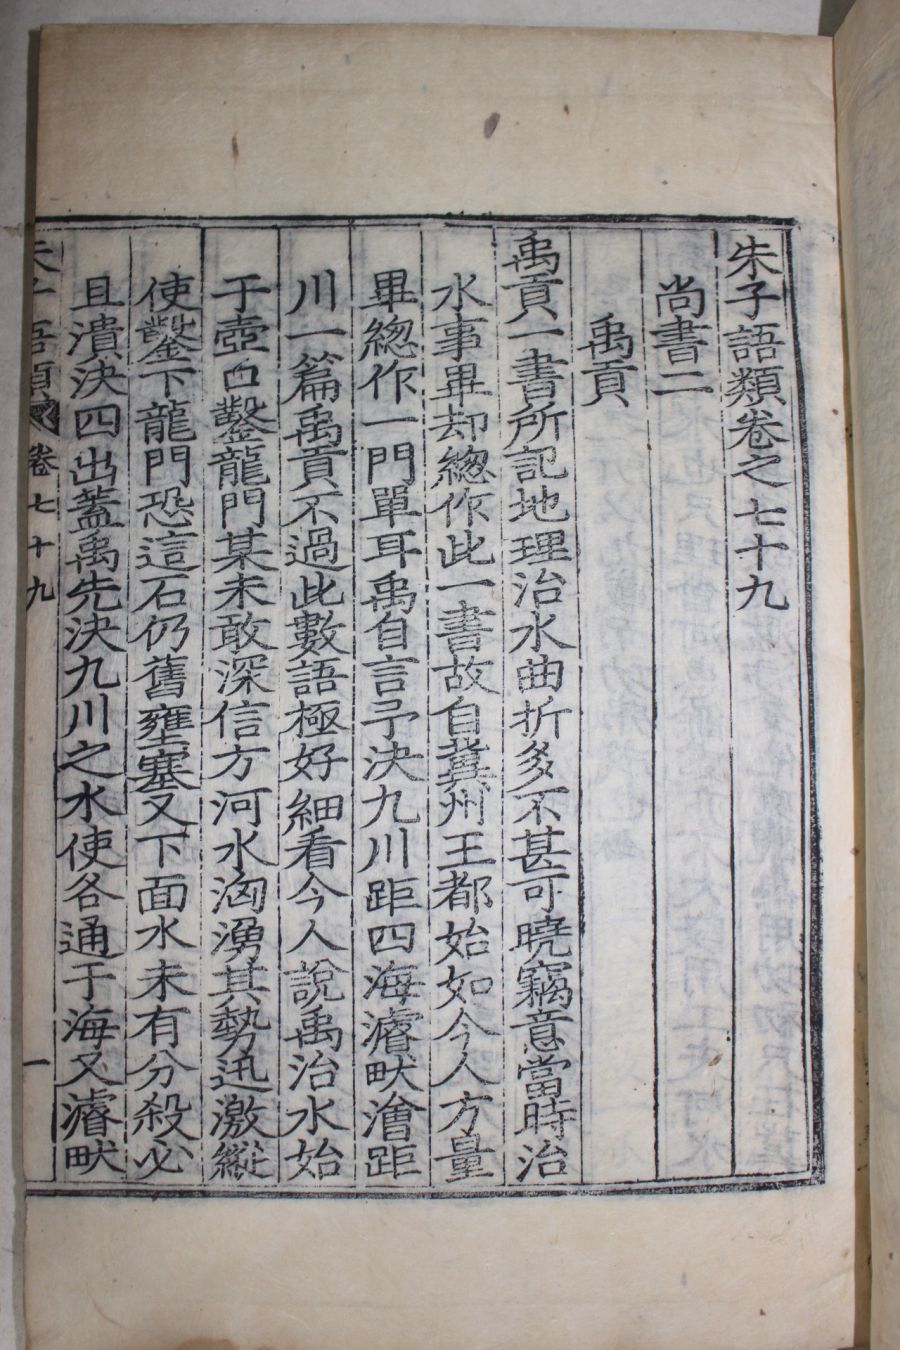 朱子語類卷之七十九
尚書二
禹貢
禹貢一書所記地理治水曲折多不甚可曉竊意當時治
水事畢却緫作此一書故自冀州王都始如今人方量
畢緫作一門單耳禹自言予決九川距四海濬畎澮距
川一篇禹貢不過此數語極好細看今人說禹治水始
于壺口鑿龍門某未敢深信方河水洶湧其勢迅激縱
使鑿下龍門恐這石仍舊壅塞又下面水未有分殺必
且潰決四出蓋禹先決九川之水使各通于海又濬畎
朱子語類 卷七十九 一